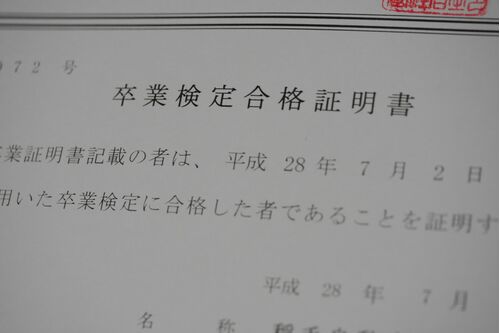 972 号
卒業検定合格証明書
業証明書記載の者は、平成 28 年 7 月 2 日
用いた卒業検定に合格した者であることを証明す
平成 28 年 7 月
名 称